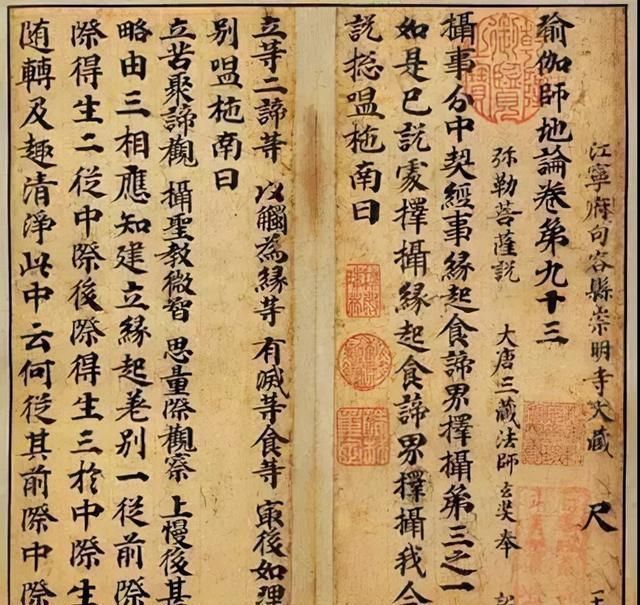 江寧府句容縣崇明寺大藏 尺
瑜伽師地論卷第九十三
弥勒菩薩説 大唐三藏法師玄奘奉
攝事分中契經事緣起食諦界擇攝第三之一
如是已説處擇攝緣起食諦界擇攝我今
説捴嗢柁南曰
立等二諦等 以觸為緣等 有滅等食等 㝡後如理
別嗢柁南曰
立苦聚諦觀 攝聖教微智 思量際觀察 上慢後甚
略由三相應知建立緣起差別一從前際
際得生二從中際後際得生三於中際生
随轉及趣清淨此中云何從其前際中際